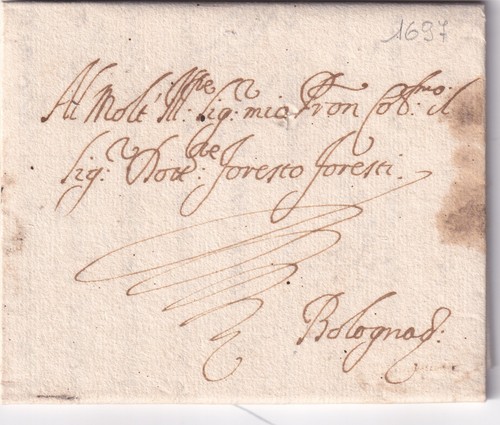 1697
Al Molt' Ill:re Sig:r mio Pron Co:mo il
Sig:r Dott:re Foresto Foresti.
Bologna